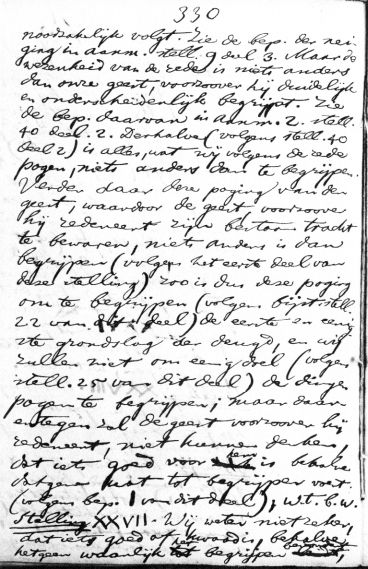 330
noodzakelijk volgt. Zie de bep. der nei-
ging in aanm. stell. 9 deel 3. Maar de
wezenheid van de rede is niets anders
dan onze geest, voorzoover hij duidelijk
en onderscheidenlijk begrijpt. Zie
de bep. daarvan in aanm. 2. stell.
40 deel. 2. Derhalve (volgens stell. 40
deel 2) is alles, wat wij volgens de rede
pogen, niets anders dan te begrijpen.
Verder daar deze poging van den
geest, waardoor de geest voorzoover
hij redeneert zijn bestaan tracht
te bewaren, niets anders is dan
begrijpen (volgens het eerste deel van
deze stelling) zoo is dus deze poging
om te begrijpen (volgens bijst. stell.
22 van dit deel) de eerste en eenig-
ste grondslag der deugd, en wij
zullen niet om eenig doel (volgens
stell. 25 van dit deel) de dingen
pogen te begrijpen; maar daar-
entegen zal de geest voorzoover hij
redeneert, niet kunnen denken,
dat iets goed voor hem is behalve
datgene wat tot begrijpen voert
(volgens bep. 1 van dit deel), w.t.b.w.
Stelling XXVII. Wij weten niet zeker,
dat iets goed of kwaad is, behalve
hetgeen waarlijk tot begrijpen